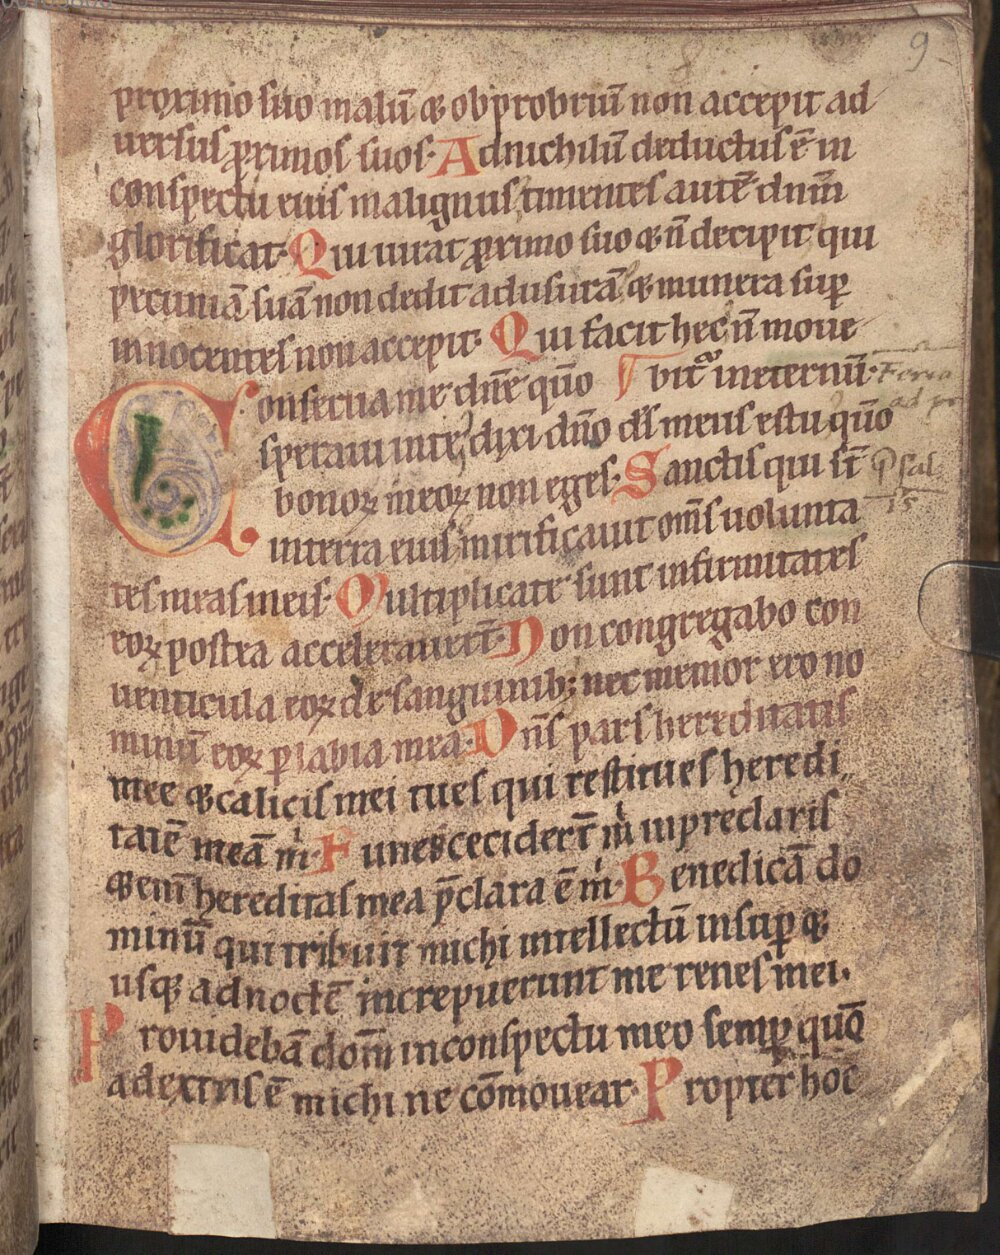 9
proximo suo malū ⁊ obprobriū non accepit ad
uersus ꝓximos suos· Adnichilū deductus ē in
conspectu eius malignus, timentes autē dnm̄
glorificat· Qui iurat ꝓximo suo ⁊ n̄ decipit qui
pecuniā suā non dedit ad usurā, ⁊ munera suꝑ
innocentes non accepit· Qui facit hec n̄ moue
Conserua me dn̄e qūo bit᷑ ineternū·
Feria
speraui inte, dixi dn̄o ds̄ meus es tu qūo
ad pr
bonoꝝ meoꝝ non eges· Sanctis qui st̄
Psal
15
interra eius mirificauit om̄s uolunta
tes meas ineis· Multiplicate sunt infirmitates
eoꝝ postea accelerauer̄t· Non congregabo con
uenticula eoꝝ de sanguinib; nec memor ero no
minū eoꝝ ꝑ labia mea· Dn̄s pars hereditatis
mee ⁊ calicis mei tu es qui restitues heredi
tatē meā m̄· Funes cecider̄t m̄ inpreclaris
⁊enī hereditas mea p̄clara ē m̄· Benedicā do
minū qui tribuit michi intellectū insuꝑ ⁊
usqꝫ ad noctē increpuerunt me renes mei.
Prouidebā dom̄ inconspectu meo semꝑ qūo
adextris ē michi ne cōmouear· Propter hoc